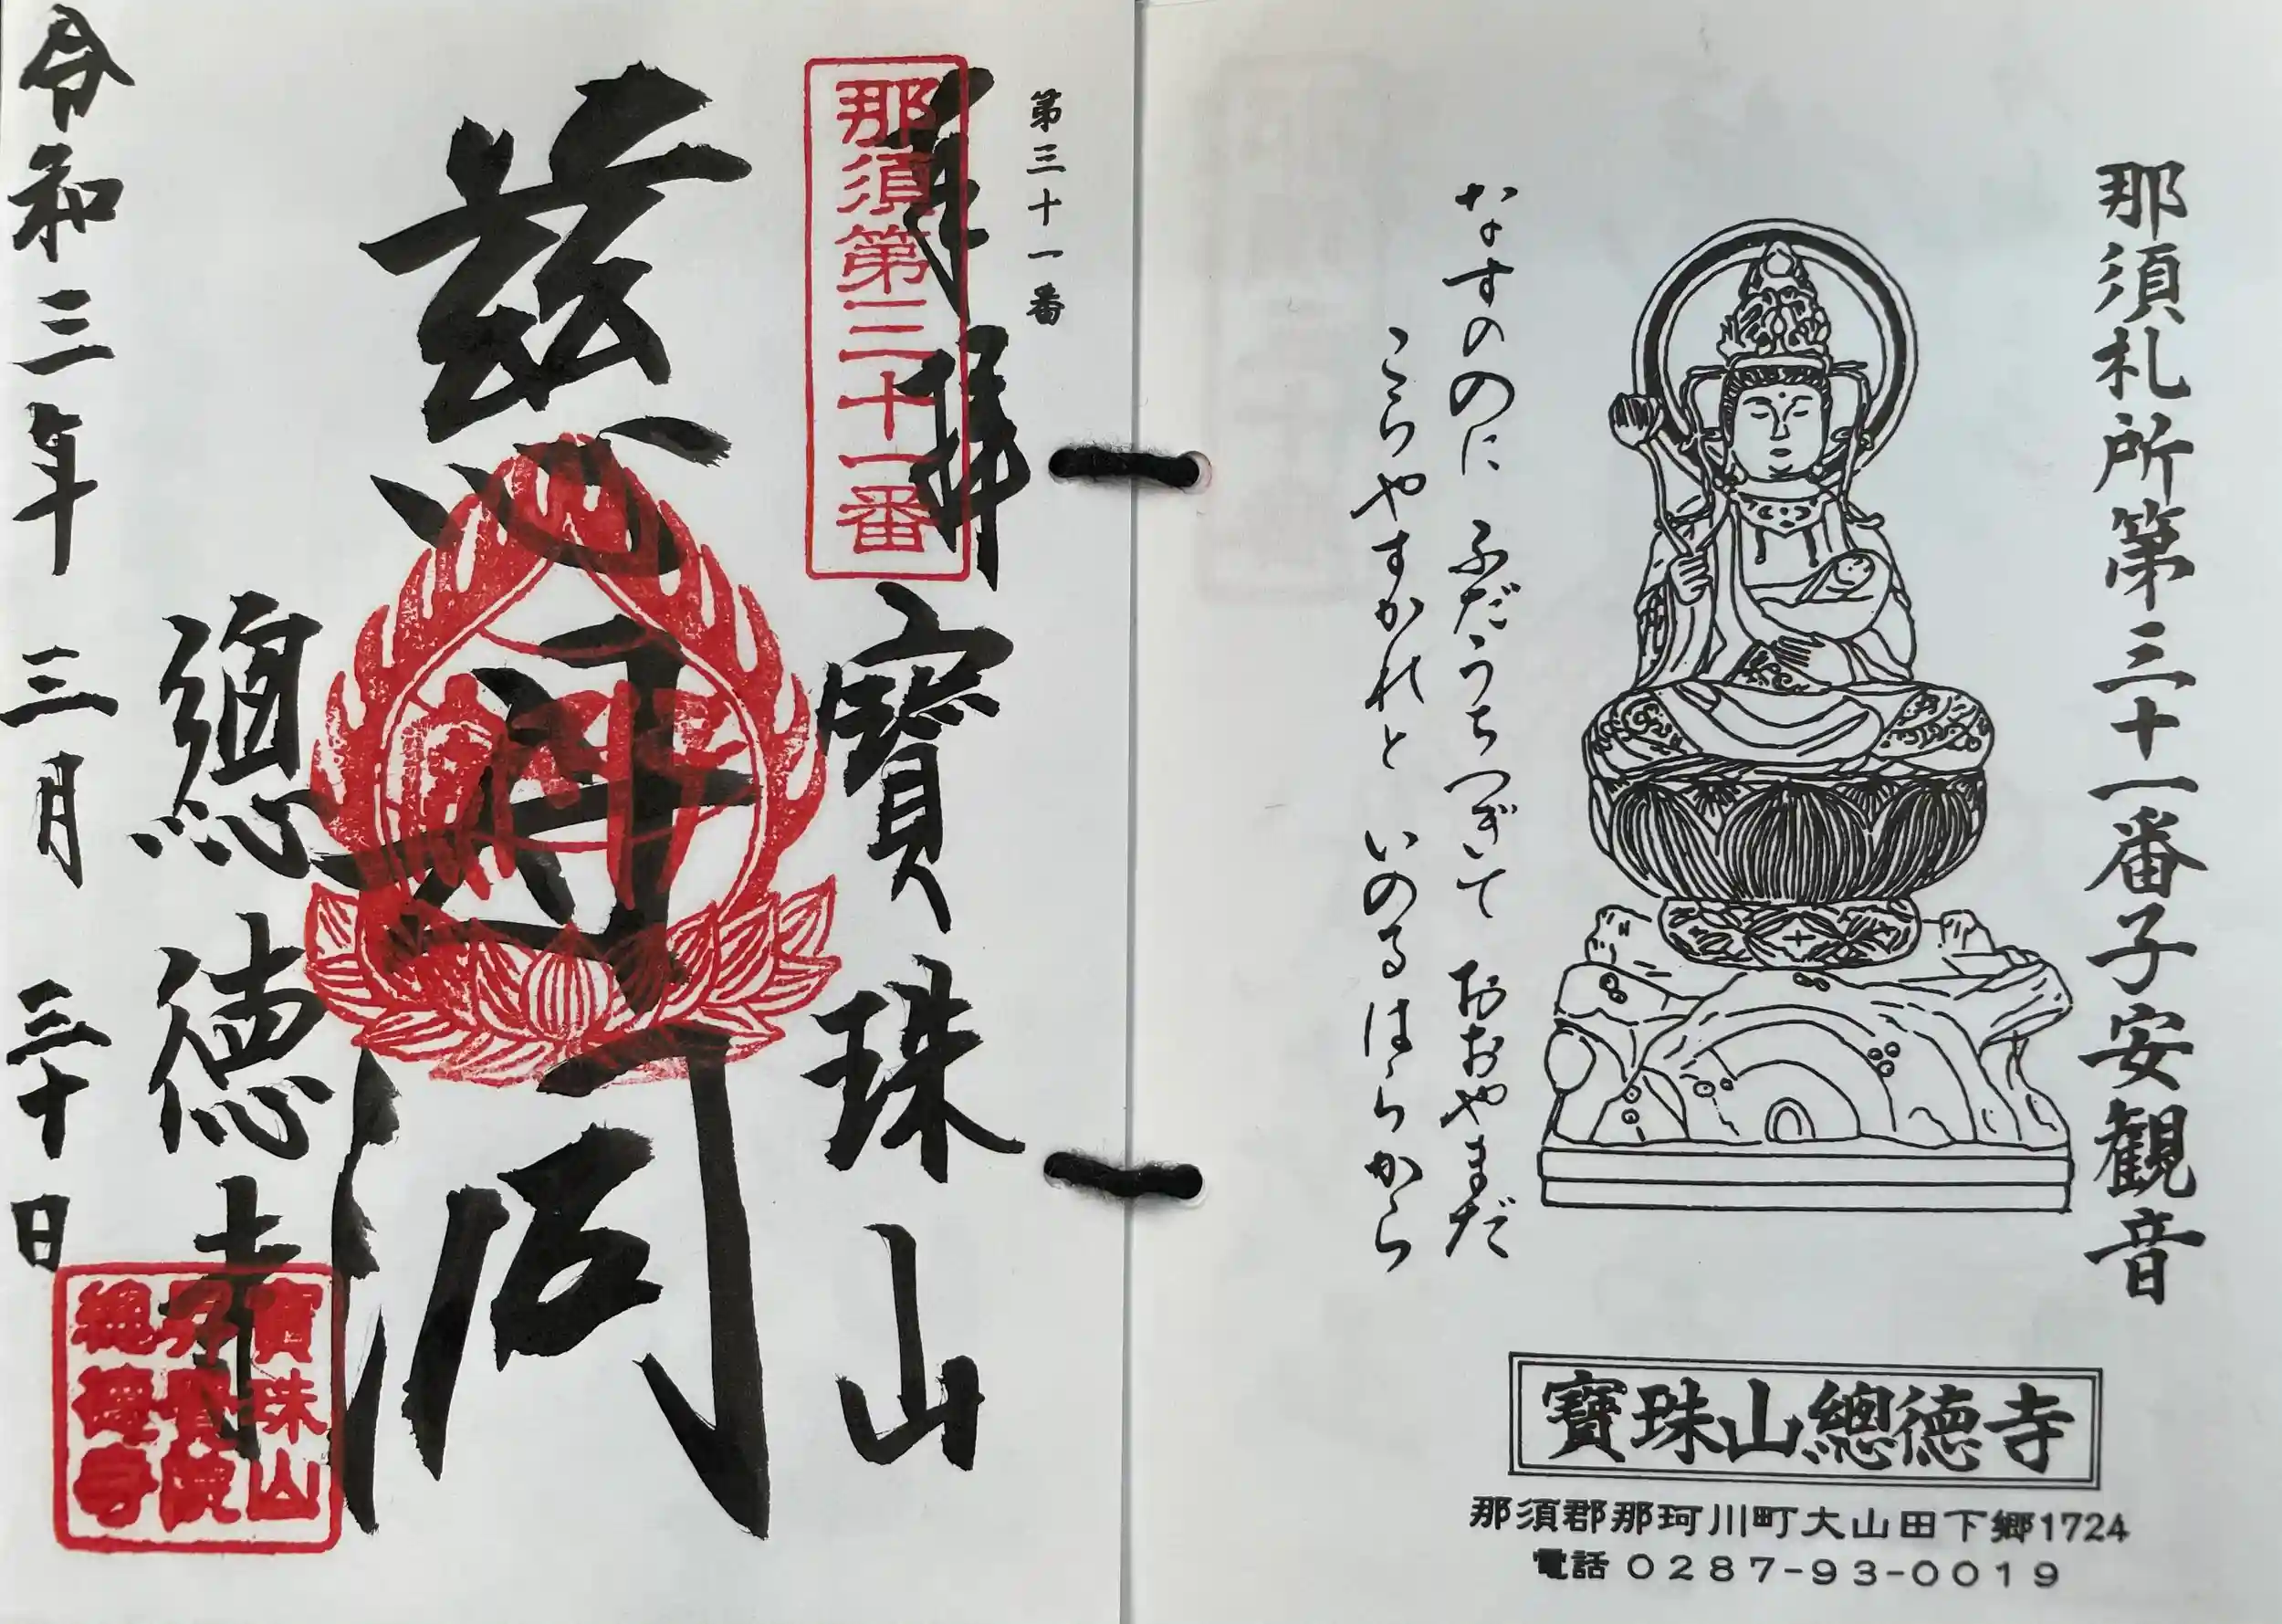 那須札所第三十一番子安観音
なすののに ふだうちつぎて おおやまだ
こころやすかれと いのるはらから
寶珠山總徳寺
那須郡那珂川町大山田下郷1724
電話 0287-93-0019
第三十一番
奉拝
那須第三十一番
寶珠山
慈母閣
總徳寺
令和三年 三月 三十日
寶珠山
總徳寺